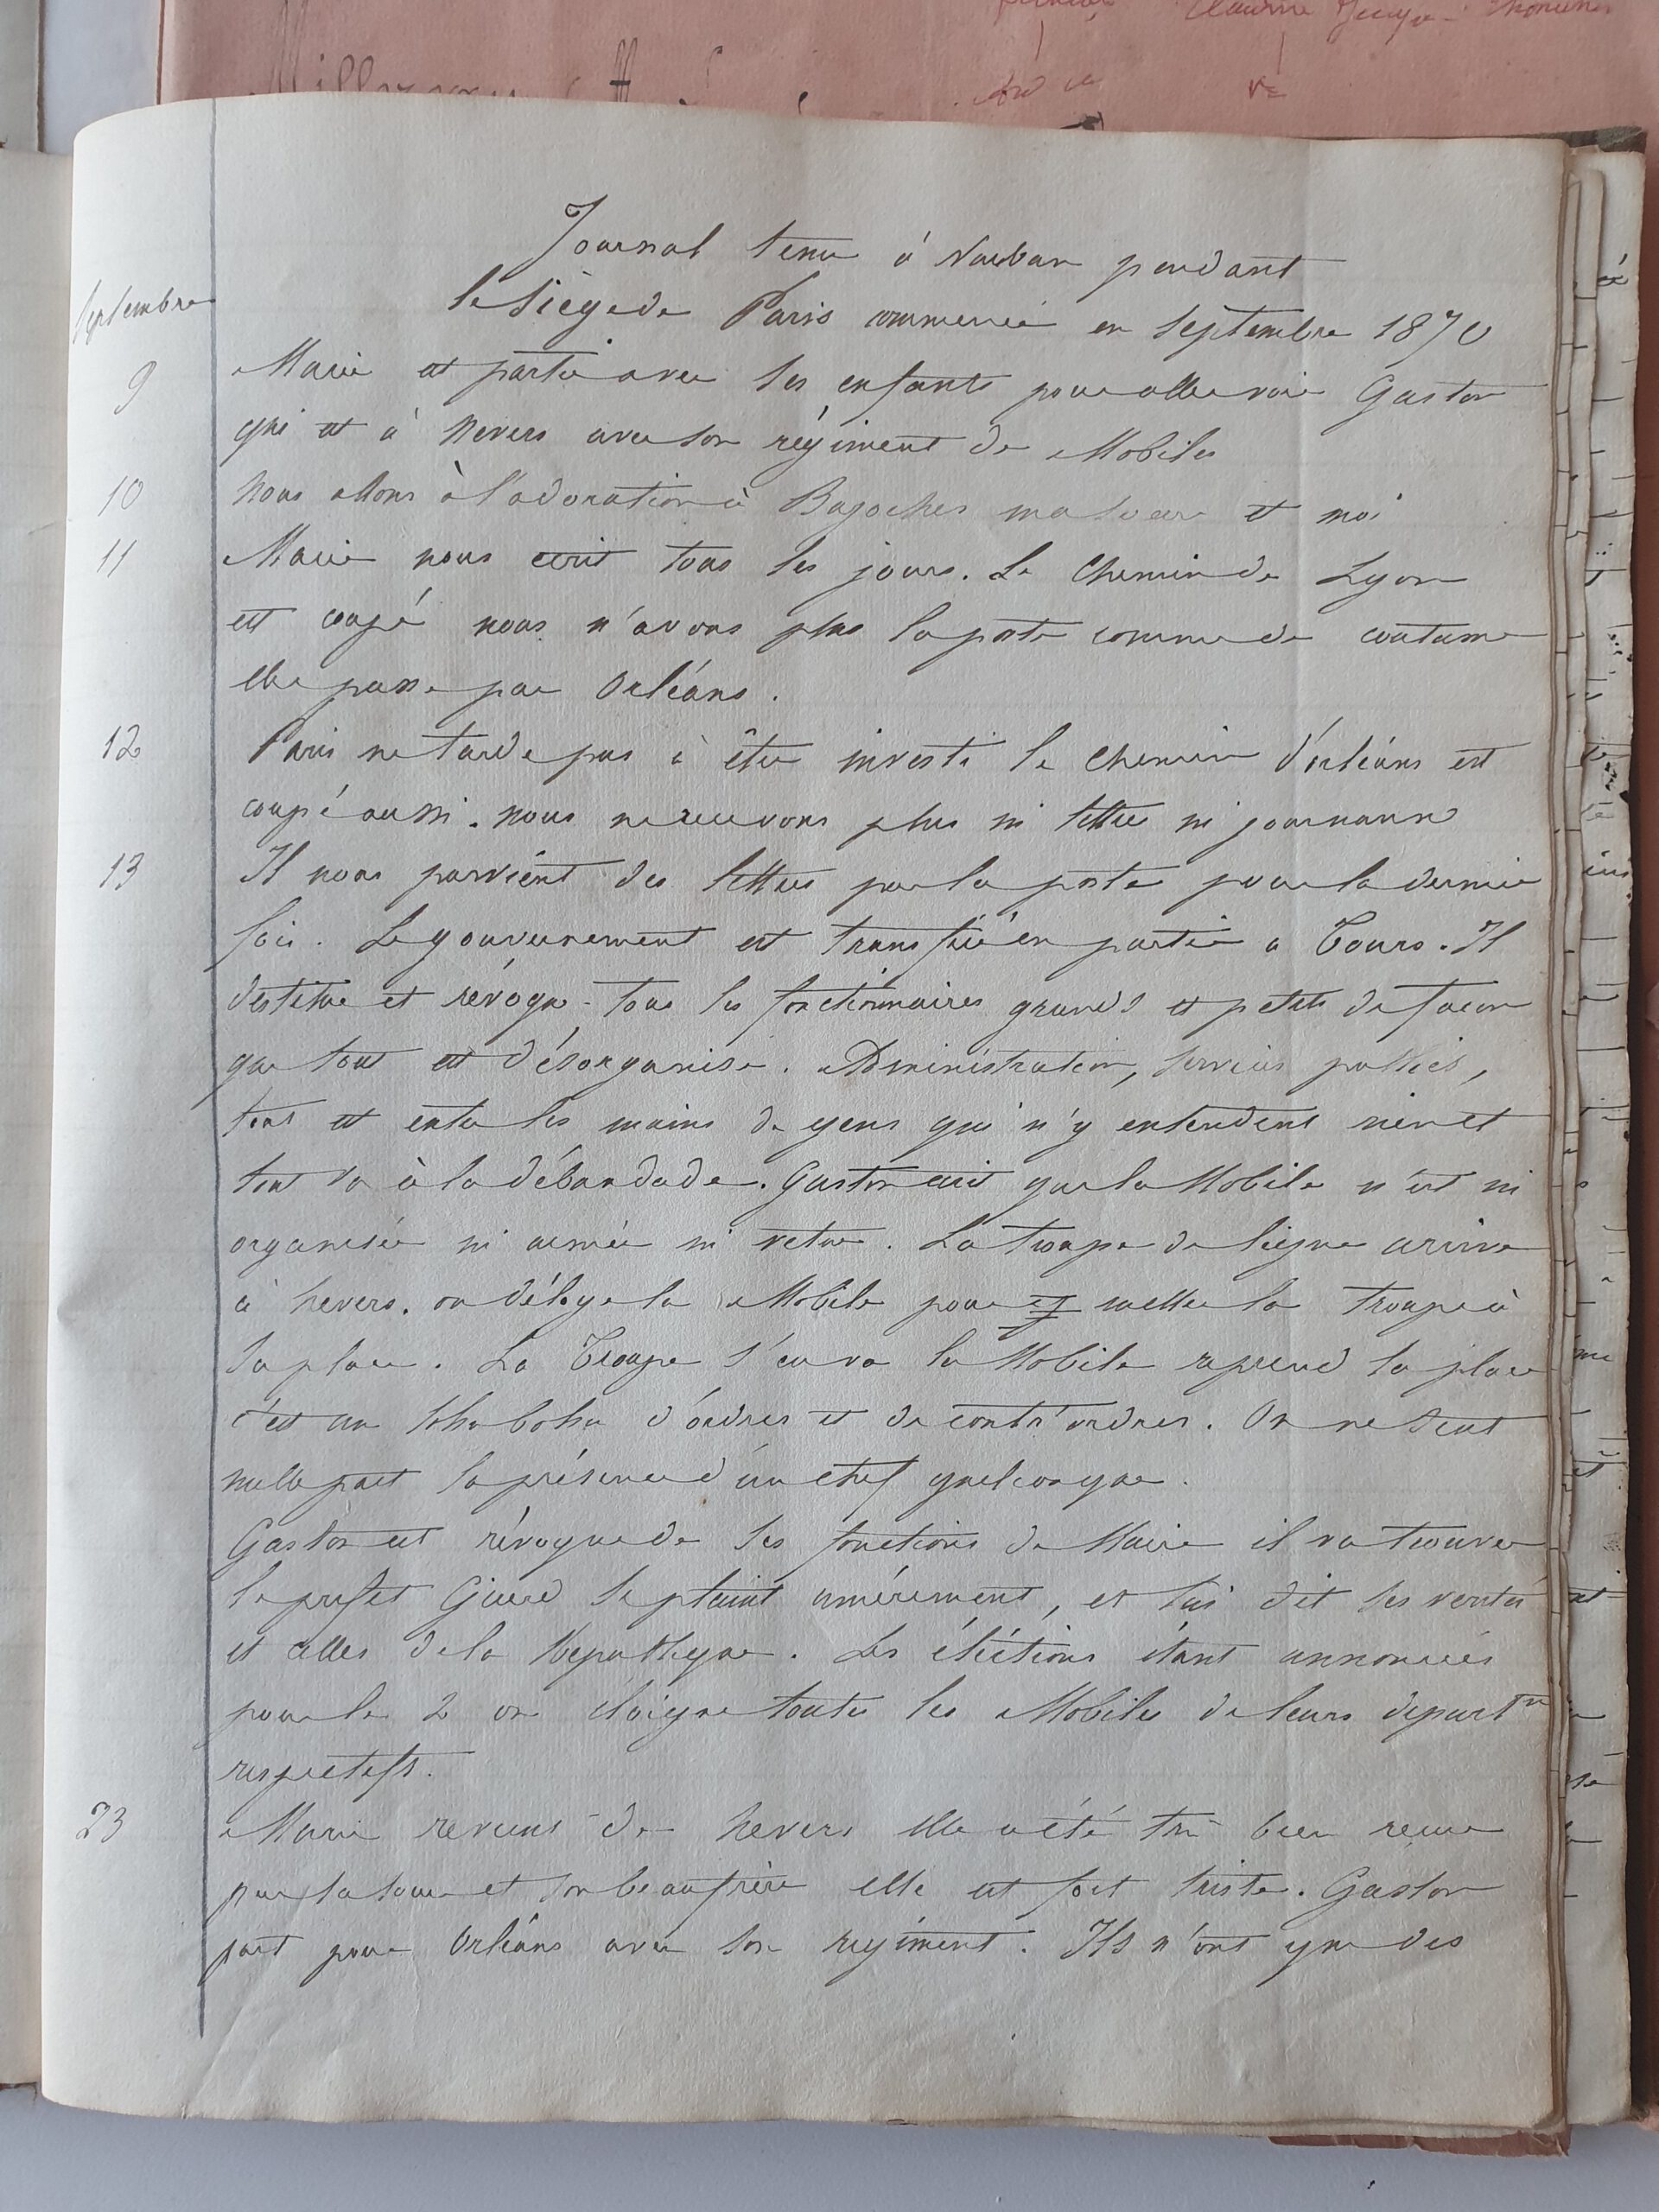 Journal tenu à Vauban pendant
le Siège de Paris commencé en Septembre 1870
Septembre
9 Marie est partie avec ses enfants pour aller voir Gaston
qui est à Nevers avec son régiment de Mobiles
10 Nous allons à l'adoration à Bazoches ma soeur et moi
11 Marie nous écrit tous les jours. Le Chemin de Lyon
est coupé nous n'avons plus la poste comme de coutume
elle passe par Orléans.
12 Paris ne tarde pas à être investi le Chemin d'orléans est
coupé aussi. nous ne recevons plus ni lettres ni journaux
13 Il nous parvient des lettres par la poste pour la dernière
fois. Le gouvernement est transféré en partie a Tours. Il
destitue et révoque tous les fonctionnaires grands et petits de facon
que tout est désorganisé. Administration, services publics,
tout est entre les mains de gens qui n'y entendent rien et
tout va à la débandade. Gaston écrit que la Mobile n'est ni
organisée ni armée ni vetue. La troupe de ligne arrive
à Nevers. on déloge la Mobile pour y mettre la troupe à
sa place. La Troupe s'en va la Mobile reprend sa place
c'est un tohu bohu d'ordres et de contr'ordres. On ne sent
nulle part la présence d'un chef quelconque.
Gaston est révoqué de ses fonctions de Maire il va trouver
le prefet Girerd se plaint amèrement, et lui dit ses vérités
et celles de la République. Les éléctions étant annoncées
pour le 2 on éloigne toutes les Mobiles de leurs departts
respectifs.
23 Marie revient de Nevers elle a été très bien recue
par sa soeur et son beau frère elle est fort triste. Gaston
part pour Orléans avec son regiment. Ils n'ont que des